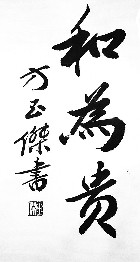 和為贵
方玉傑書